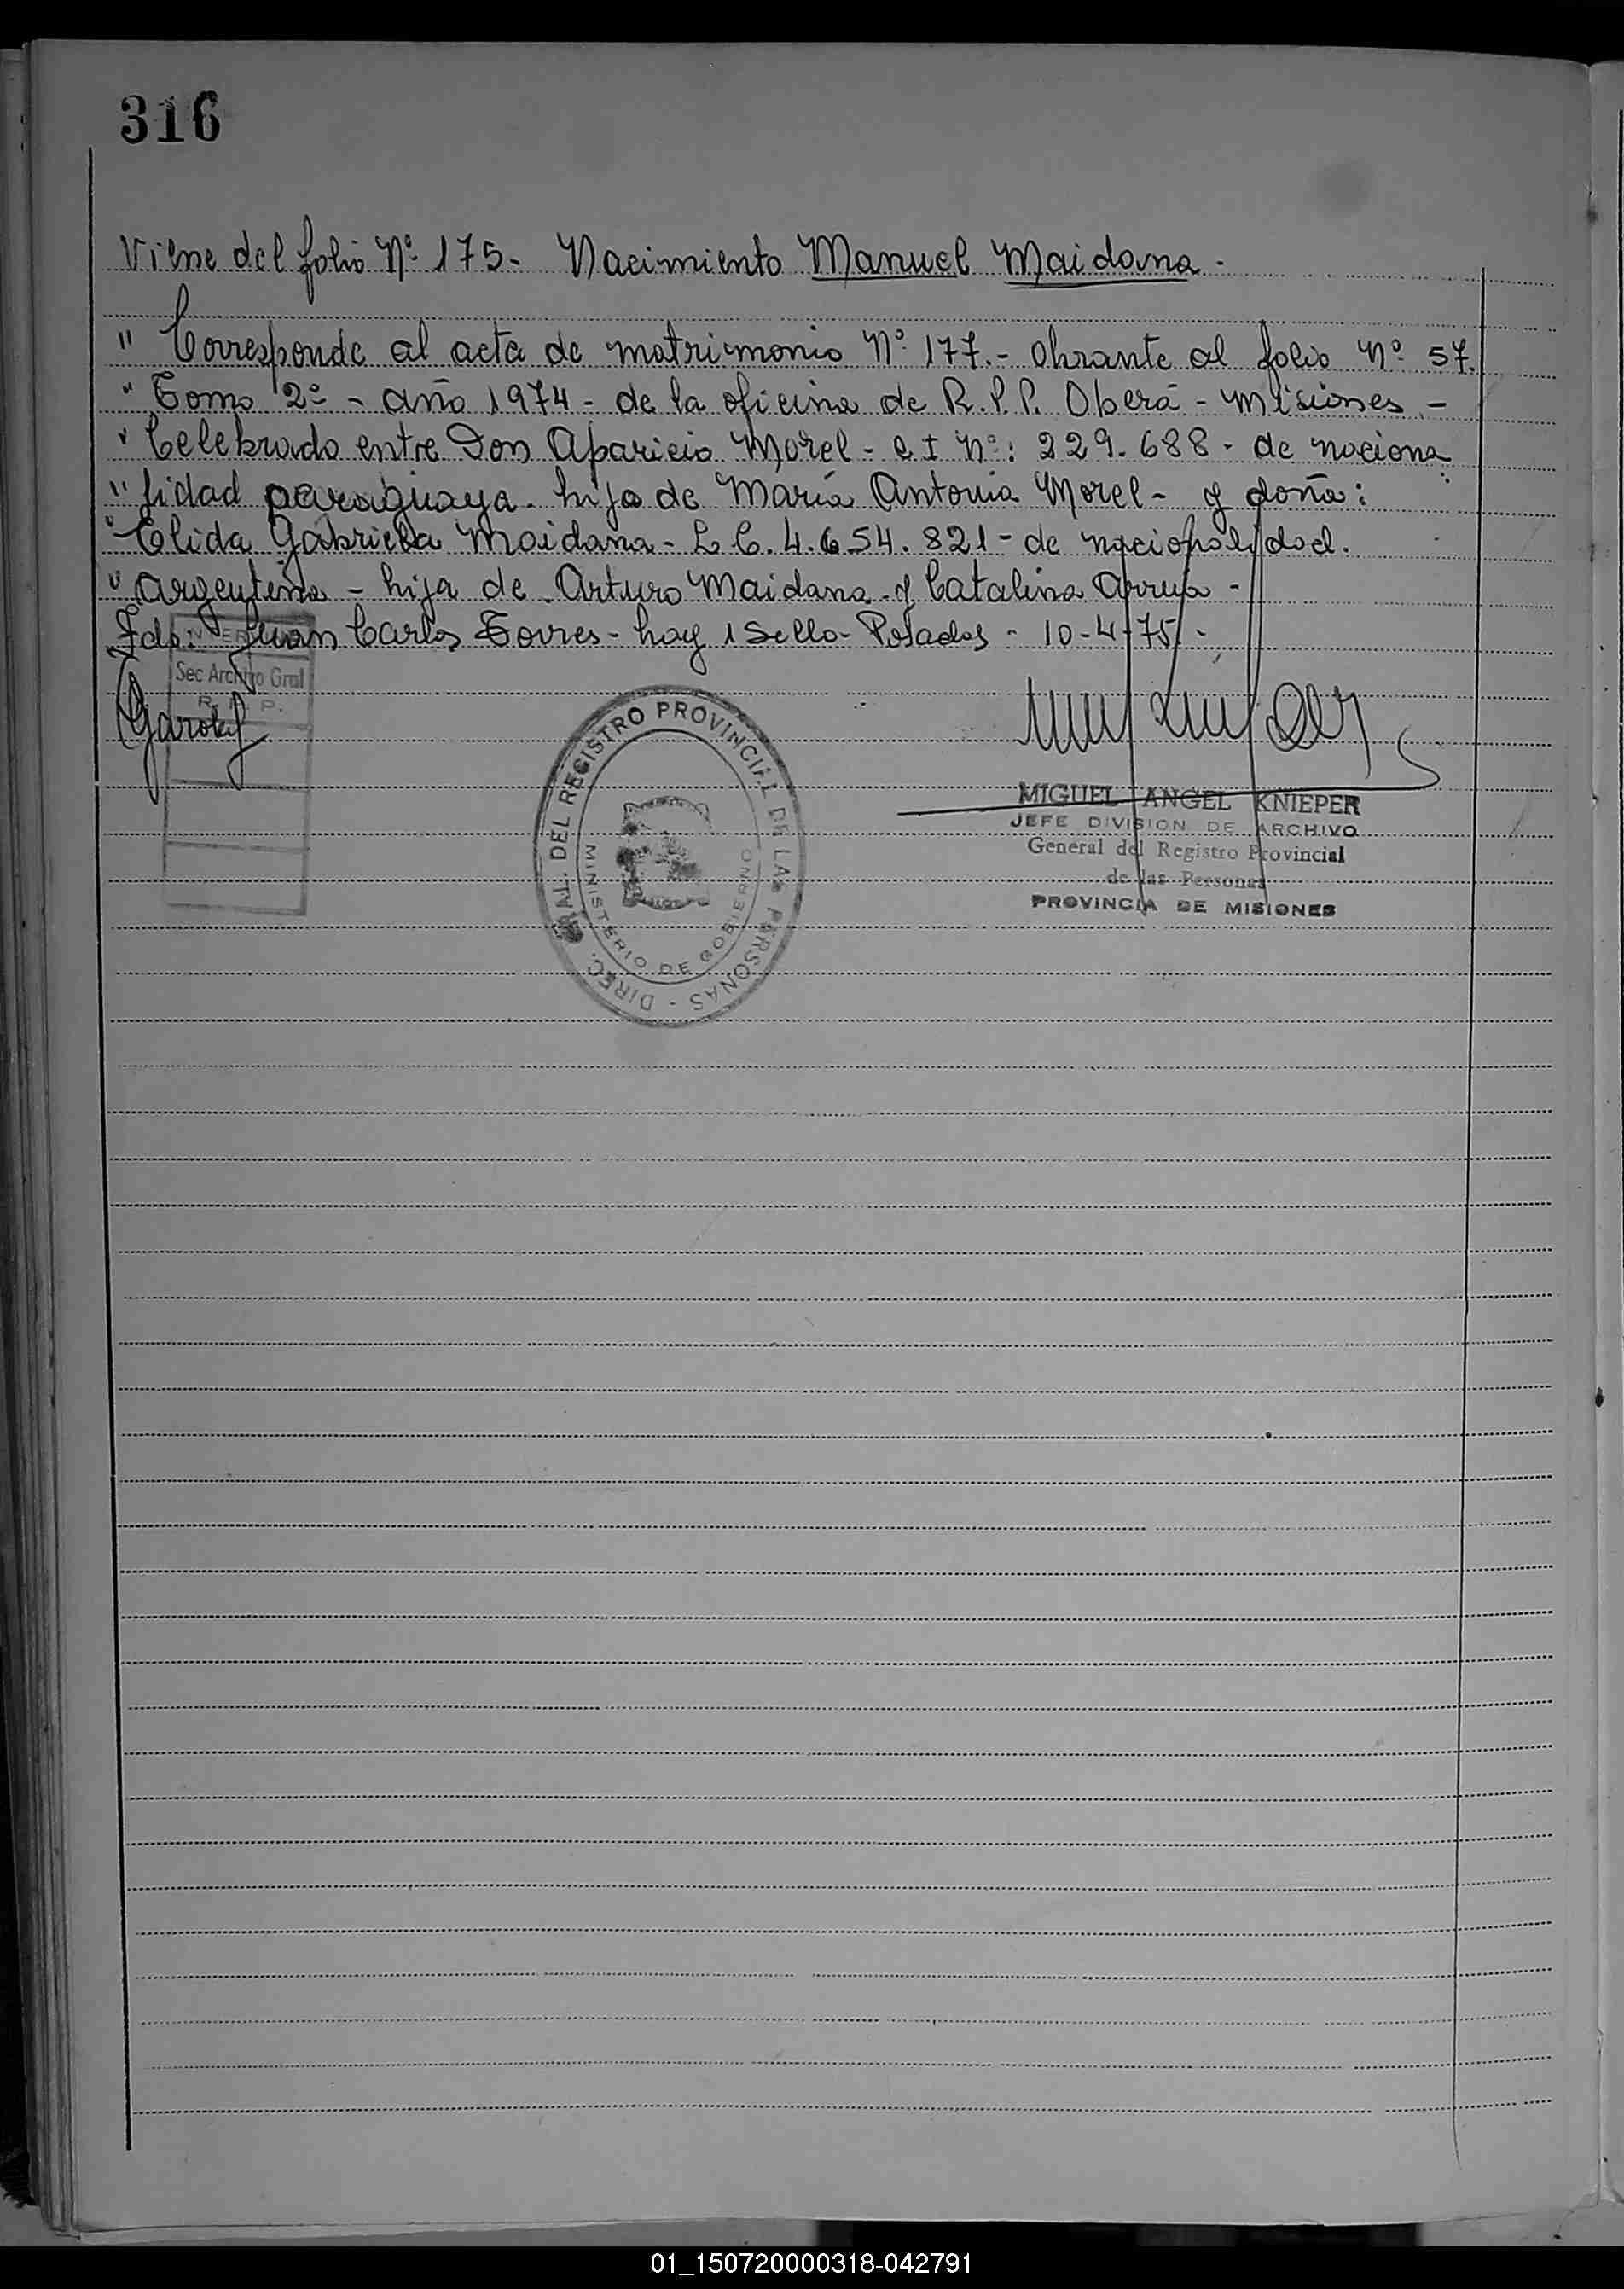 316
Viene del folio Nº 175- Nacimiento Manuel Maidana -
" Corresponde al acta de matrimonio Nº 177.- Obrante al folio Nº 57.
" Tomo 2º - año 1974 - de la oficina de R.P.P. Oberá - Misiones -
" Celebrado entre Don Aparicio Morel - C I Nº: 229.688 - de naciona
" lidad paraguaya - hijo de María Antonia Morel - y doña:
" Elida Gabriela Maidana - L C. 4.654.821 - de nacionalidad.
" argentina - hija de Arturo Maidana y Catalina Arrua -
Fdo: Juan Carlos Torres - hay 1 Sello - Posadas - 10-4-75 -
Sec Archivo Gral
R. P. P.
DIREC. GRAL. DEL REGISTRO PROVINCIAL DE LAS PERSONAS -
MINISTERIO DE GOBIERNO
MIGUEL ANGEL KNIEPER
JEFE DIVISION DE ARCHIVO
General del Registro Provincial
de las Personas
PROVINCIA DE MISIONES
01_150720000318-042791